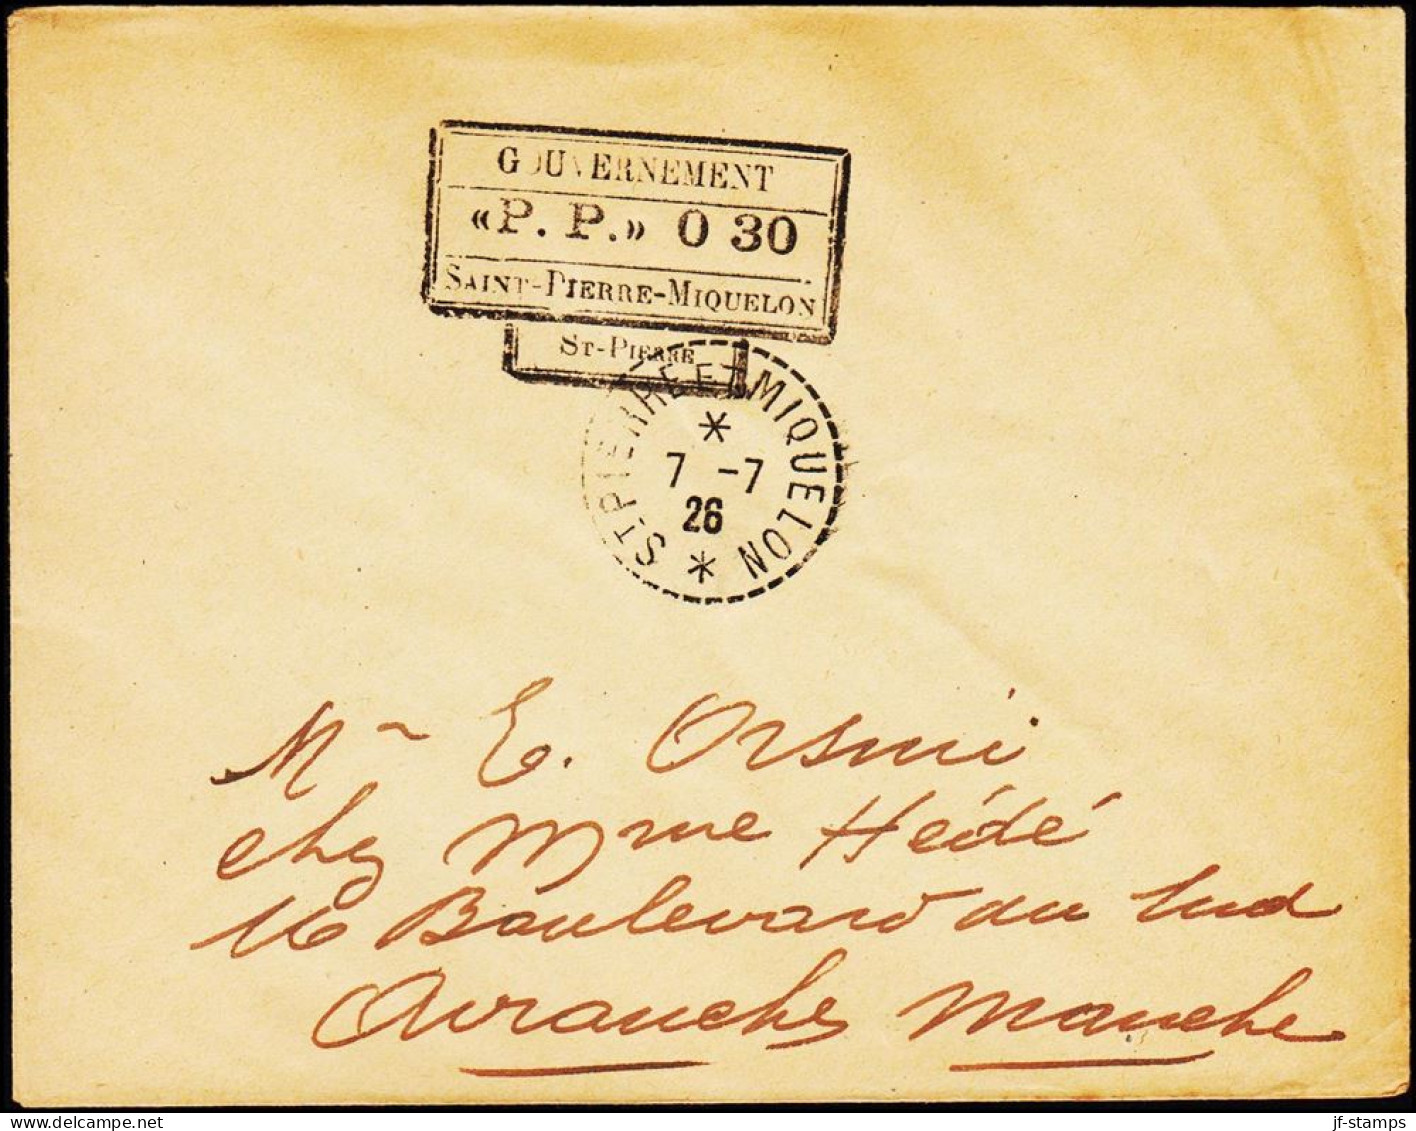 GOUVERNEMENT
«P. P.» 0 30
SAINT-PIERRE-MIQUELON
ST-PIERRE
ST PIERRE ET MIQUELON
7 -7
26
Mr E. Orsini
chez Mme Hédé
16 Boulevard du Sud
Avranches Manche
jf-stamps